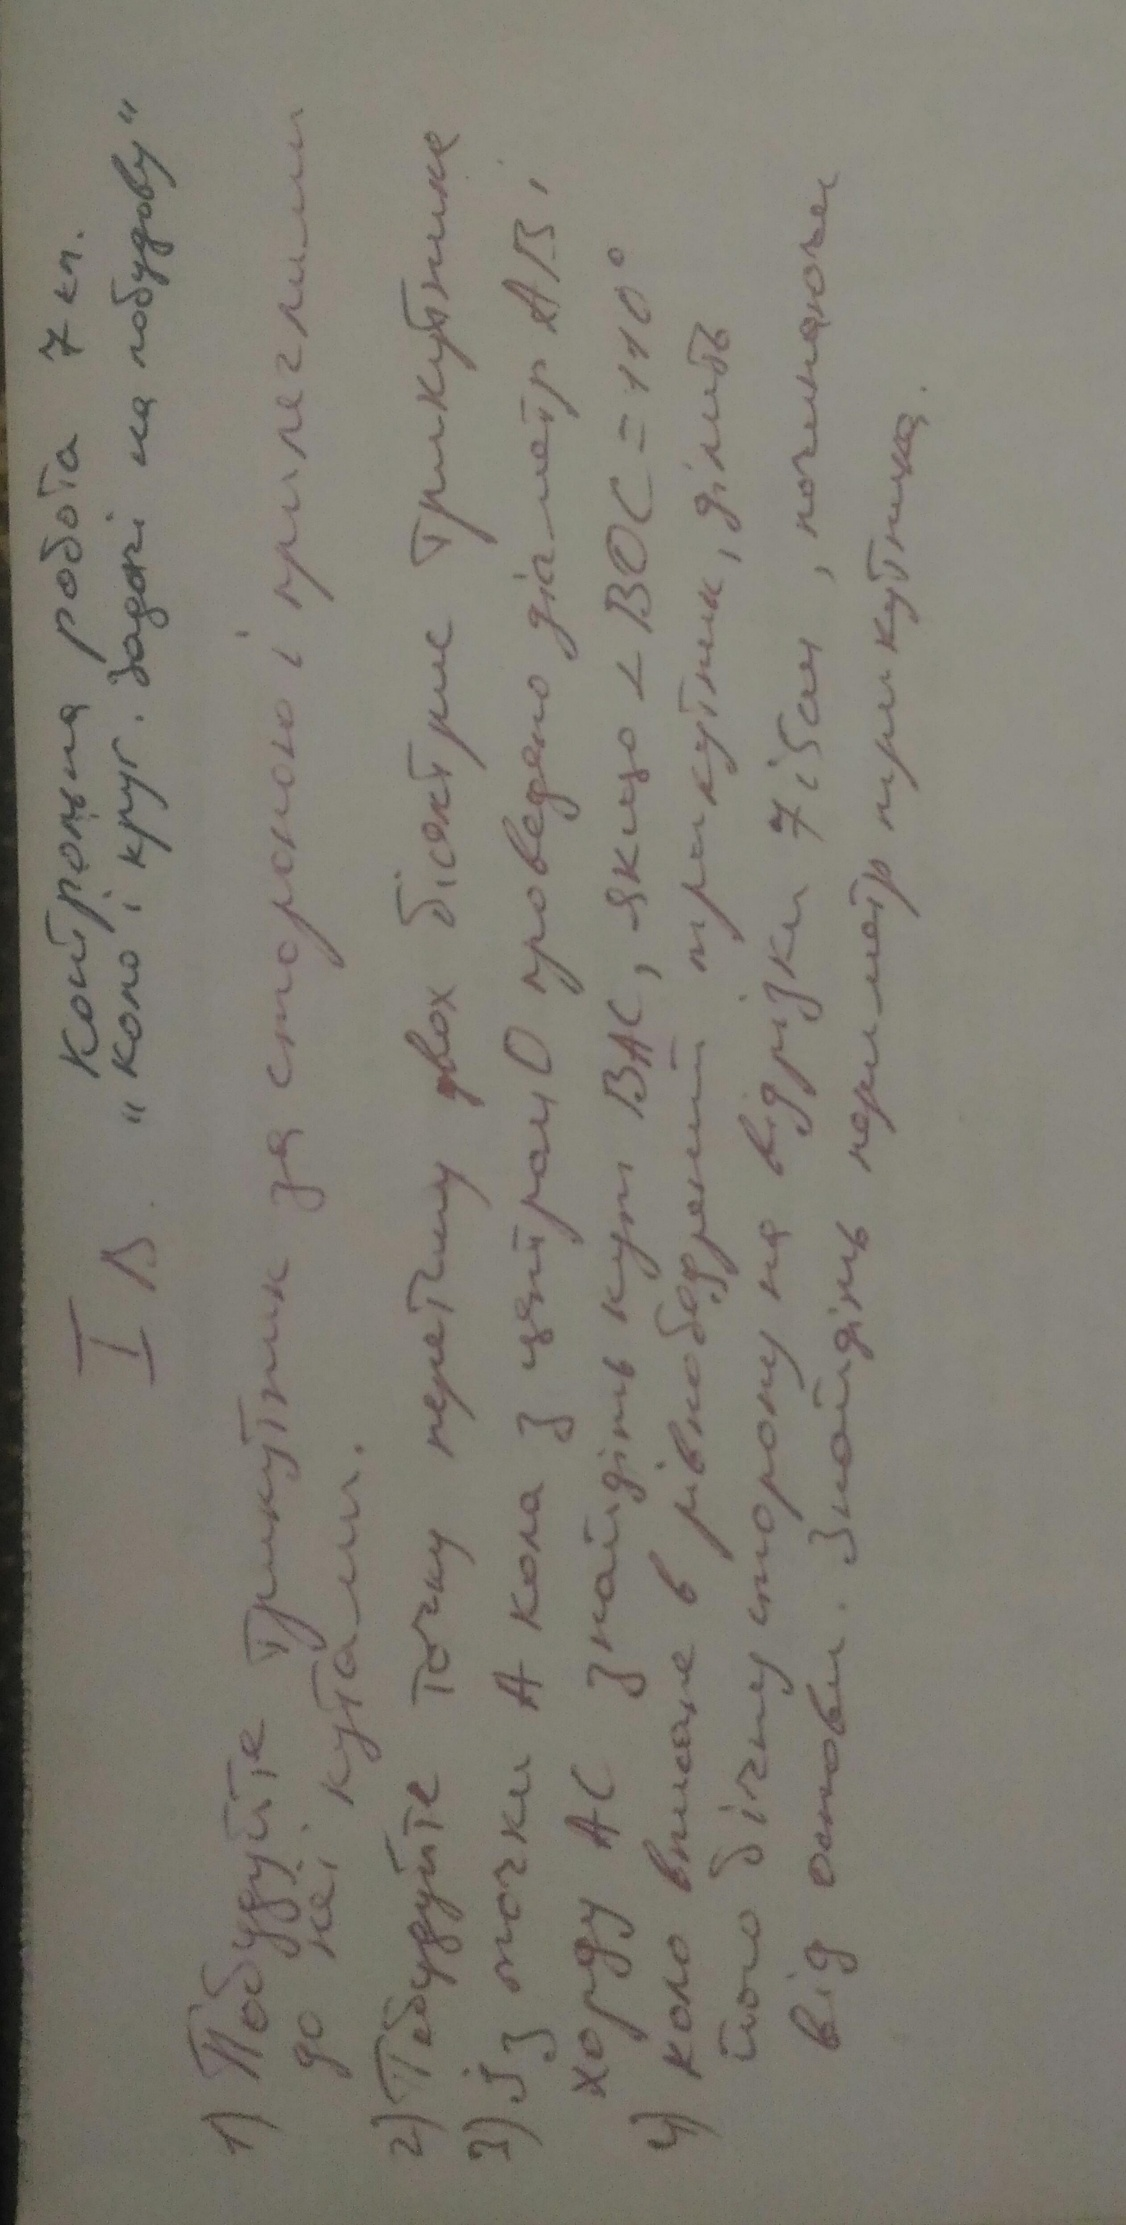 І В. Контрольна робота 7 кл.
"Коло і круг. Задачі на побудову"
1) Побудуйте трикутник за стороною і прилеглими
до неї кутами.
2) Побудуйте точку перетину двох бісектрис трикутника
3) Із точки А кола з центром О проведено діаметр АВ і
хорду АС Знайдіть кут ВАС, якщо ∠ВОС = 110°
4) Коло вписане в рівнобедрений трикутник, ділить
його бічну сторону на відрізки 7 і 5 см, починаючи
від основи. Знайдіть периметр трикутника.